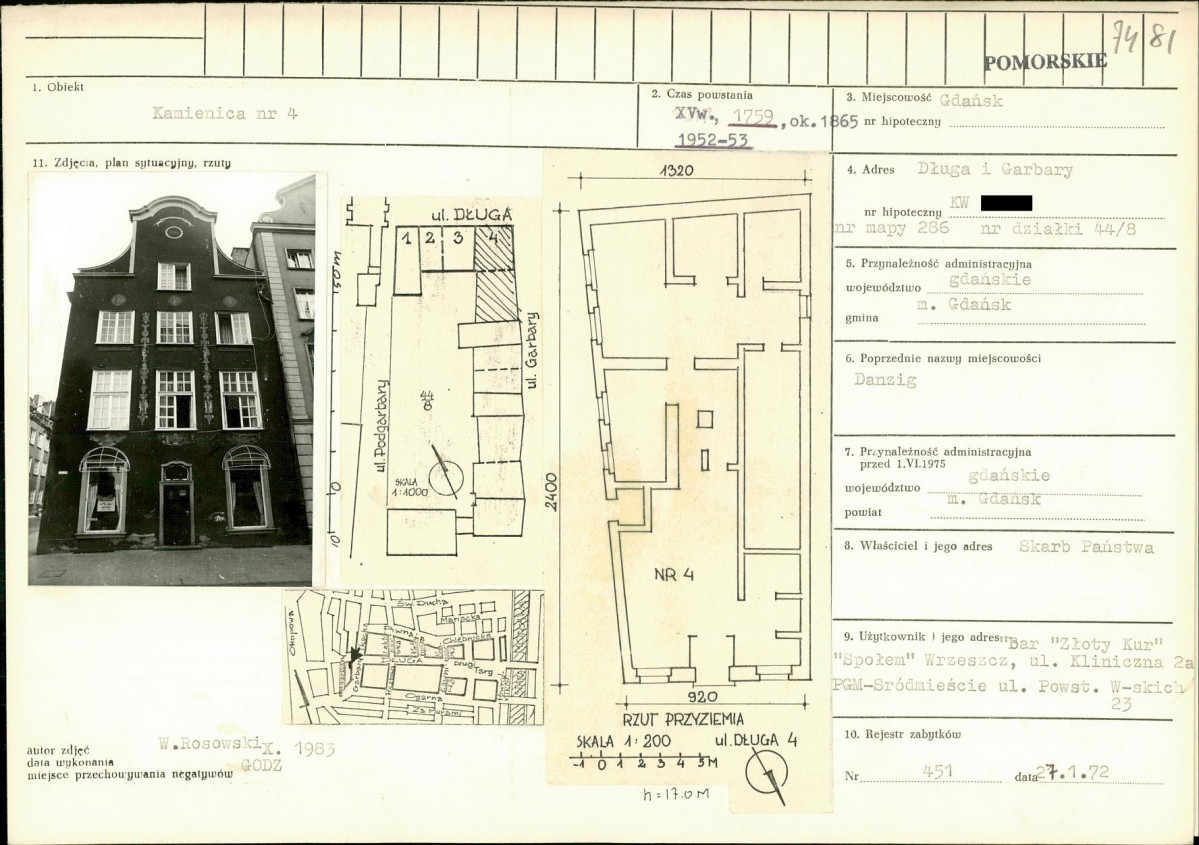 74 81
POMORSKIE
1. Obiekt
Kamienica nr 4
2. Czas powstania
XVw., 1759, ok. 1865
1952-53
3. Miejscowość Gdańsk
nr hipoteczny
11. Zdjęcia, plan sytuacyjny, rzuty
4. Adres Długa i Garbary
nr hipoteczny KW
nr mapy 286 nr działki 44/8
5. Przynależność administracyjna
województwo gdańskie
gmina m. Gdańsk
6. Poprzednie nazwy miejscowości
Danzig
7. Przynależność administracyjna
przed 1.VI.1975
województwo gdańskie
powiat m. Gdańsk
8. Właściciel i jego adres Skarb Państwa
9. Użytkownik i jego adres "Bar "Złoty Kur"
"Społem" Wrzeszcz, ul. Kliniczna 2a
PGM-Sródmieście ul. Powst. W-skich
23
10. Rejestr zabytków
Nr 451 data 27.1.72
ul. DŁUGA
1 2 3 4
50 M
0
10
ul. Podgarbary
ul. Garbary
44/8
SKALA
1:1000
1320
2400
NR 4
920
RZUT PRZYZIEMIA
SKALA 1:200 ul. DŁUGA 4
-1 0 1 2 3 4 5M
h = 17.0 M
Św. Ducha
Mariacka
Piwna
Chlebnicka
Okopowa
Garbary
DŁUGA
Długi Targ
Ogarna
Za Murami
autor zdjęć W. Rosowski
data wykonania X. 1983
miejsce przechowywania negatywów GODZ